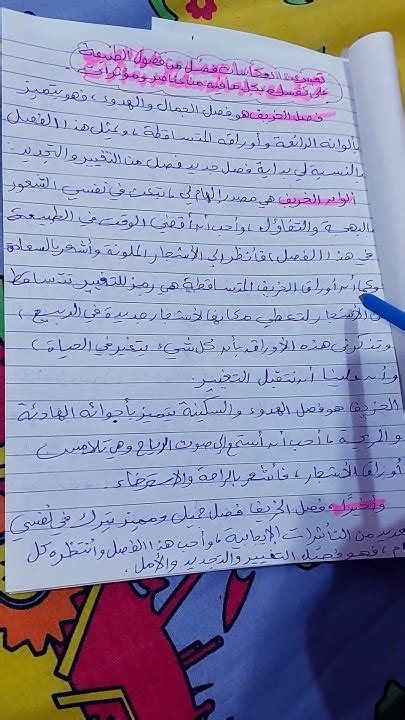 تصوير انعكاسات فصل من فصول الطبيعة
على نفسك بكل ما فيه من مناظر ومؤثرات
فصل الخريف هو فصل الجمال والهدوء، فهو يتميز
بألوانه الرائعة وأوراقه المتساقطة، ويمثل هذا الفصل
بالنسبة لي بداية فصل جديد فصل من التغيير والتجديد.
ألوان الخريف هي مصدر إلهام لي، تبعث في نفسي الشعور
بالبهجة والتفاؤل، وأحب أن أقضي الوقت في الطبيعة
في هذا الفصل، فأنظر إلى الأشجار الملونة وأشعر بالسعادة
وكما أن أوراق الخريف المتساقطة هي رمز للتغيير تتساقط
الأشجار لتعطي مكانها لأشجار جديدة في الربيع،
وتذكرني هذه الأوراق بأن كل شيء يتغير في الحياة،
وأن علينا أن نتقبل التغيير.
الخريف هو فصل الهدوء والسكينة يتميز بأجوائه الهادئة
والمريحة، أحب أن أستمع إلى صوت الرياح وهي تلامس
أوراق الأشجار، فأشعر بالراحة والاسترخاء.
وأخيراً، فصل الخريف فصل جميل ومميز يترك في نفسي
العديد من التأثيرات الإيجابية، وأحب هذا الفصل وأنتظره كل
عام، فهو فصل التغيير والتجديد والأمل.